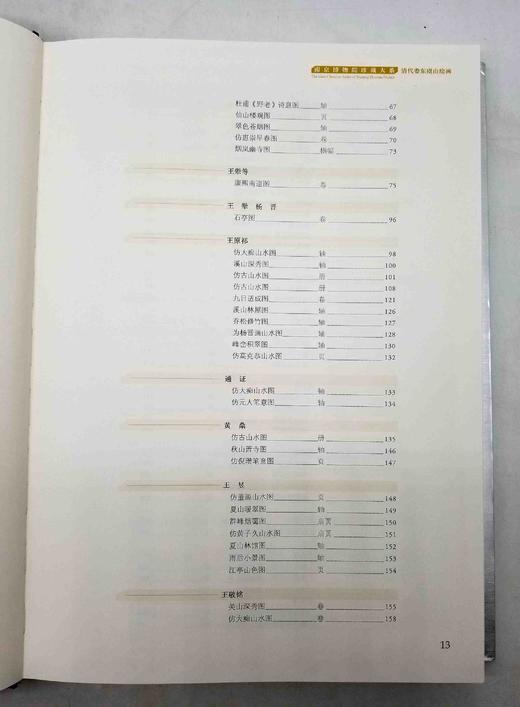 南京博物院珍藏大系 清代娄东虞山绘画
杜甫《野老》诗意图 轴 67
仙山楼观图 页 68
翠色苍烟图 轴 69
仿惠崇早春图 卷 70
烟岚幽寺图 横幅 73
王翚等
康熙南巡图 卷 75
王 翚 杨 晋
石亭图 卷 96
王原祁
仿大痴山水图 轴 98
溪山深秀图 轴 100
仿古山水图 册 101
仿古山水图 册 108
九日适成图 卷 121
溪山林屋图 轴 126
乔松修竹图 轴 127
为杨晋画山水图 轴 128
峰峦积翠图 轴 130
仿高克恭山水图 页 132
通 证
仿大痴山水图 轴 133
仿元人笔意图 轴 134
黄 鼎
仿古山水图 册 135
秋山萧寺图 轴 146
仿倪瓒笔意图 页 147
王 昱
仿董源山水图 页 148
夏山暖翠图 轴 149
群峰烟霭图 扇页 150
仿黄子久山水图 扇页 151
夏山林馆图 轴 152
雨后小景图 轴 153
江亭山色图 页 154
王敬铭
关山深秀图 卷 155
仿大痴山水图 卷 158
13